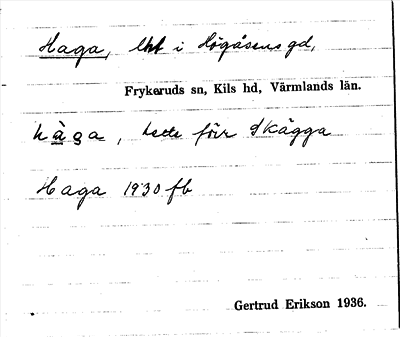 Haga, lht i Högåsens gd,
Frykeruds sn, Kils hd, Värmlands län.
hàga, hette förr Skägga
Haga 1930 fb
Gertrud Erikson 1936.